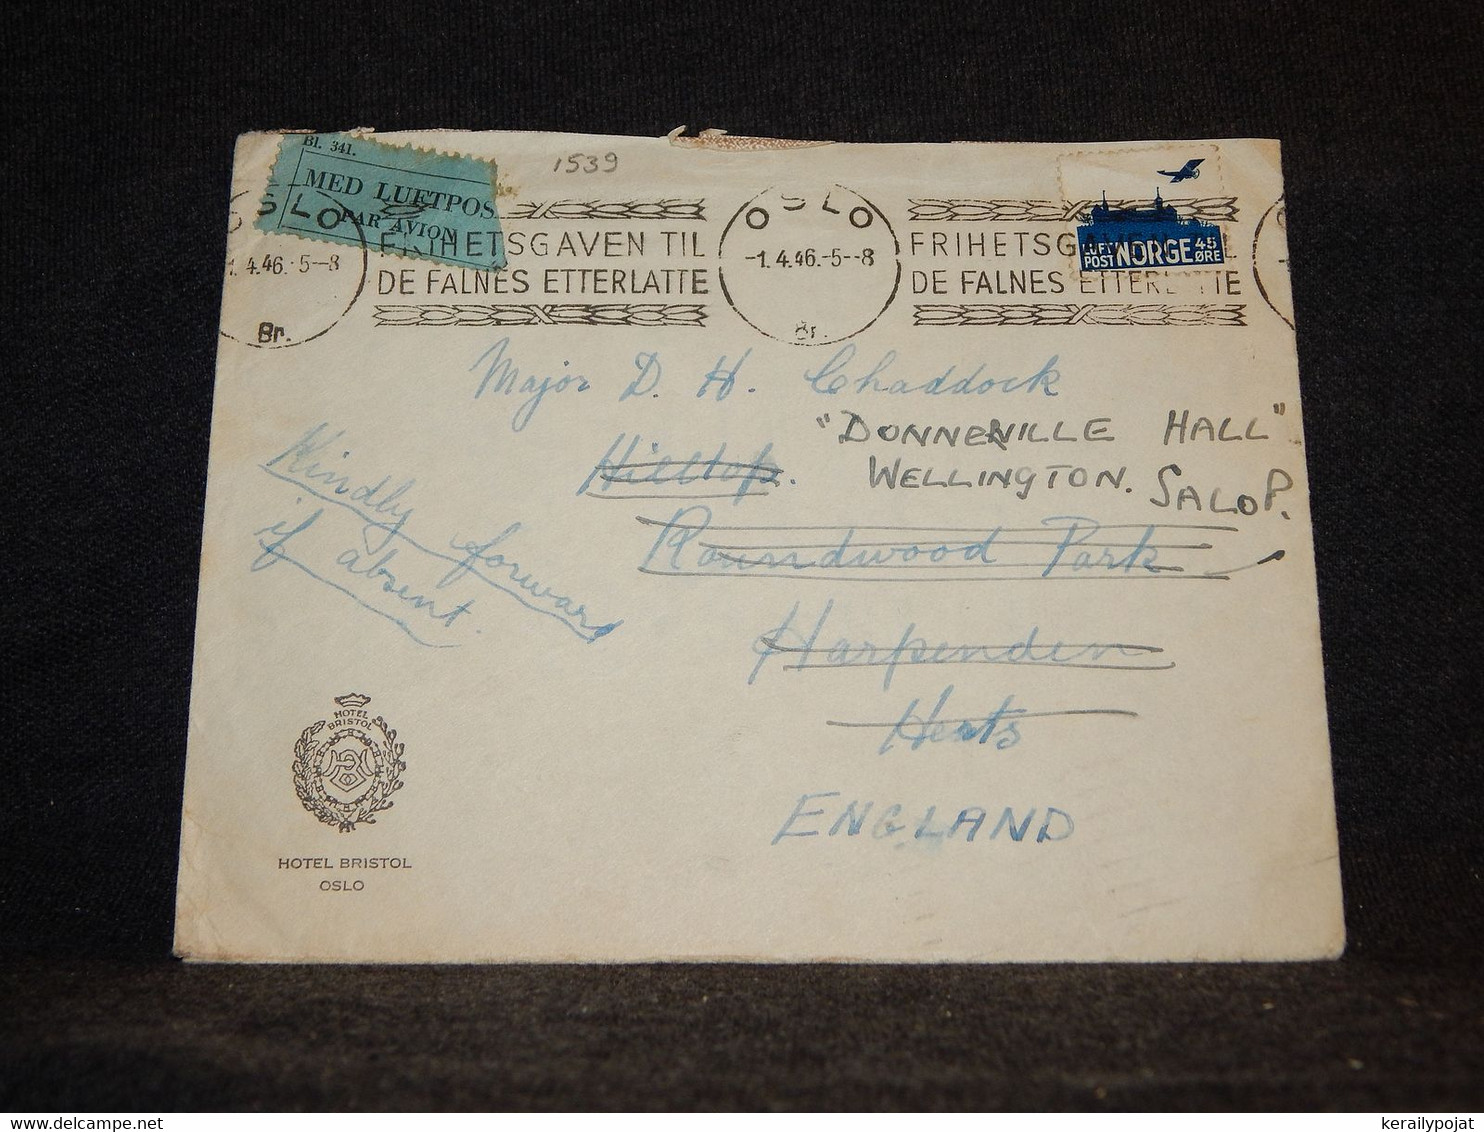 Bl. 341.
MED LUFTPOS
PAR AVION
1539
OSLO
1.4.46.-5--8
Br.
FRIHETSGAVEN TIL
DE FALNES ETTERLATTE
OSLO
-1.4.46.-5--8
Br.
FRIHETSGAVEN TIL
DE FALNES ETTERLATTE
LUFT
POST NORGE 45
ØRE
Major D. H. Chaddock
"DONNERVILLE HALL"
Hilltop.
WELLINGTON. SALOP.
Roundwood Park
Harpenden
Herts
ENGLAND
Kindly forward
if absent.
HOTEL
BRISTOL
HOTEL BRISTOL
OSLO
kerailypojat